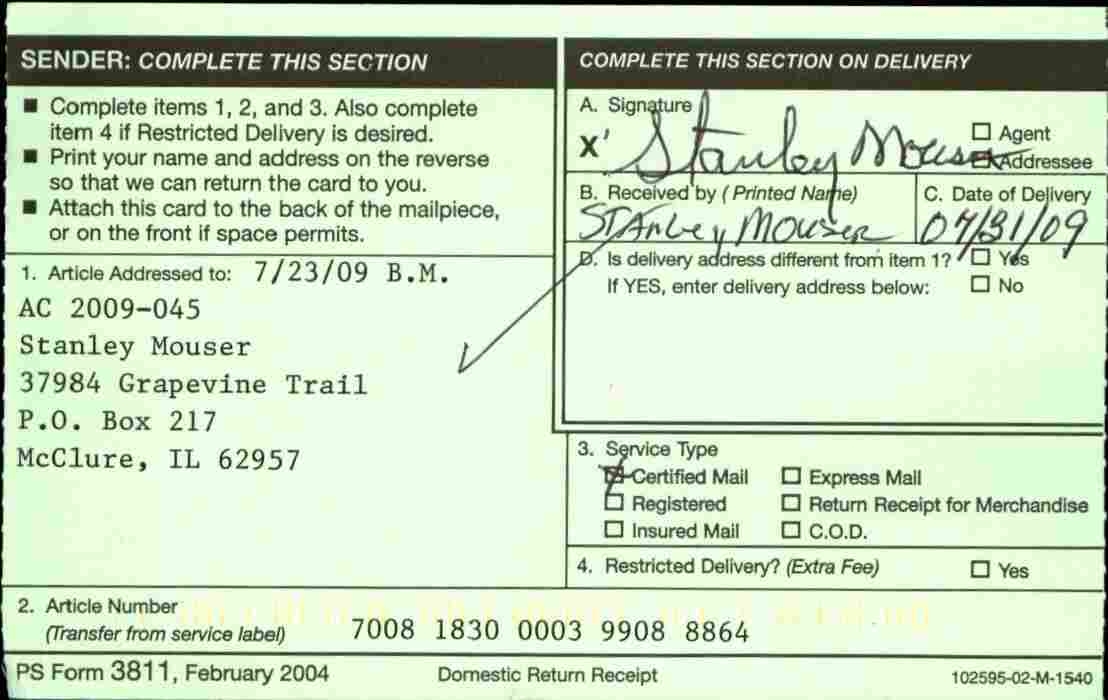 SENDER: COMPLETE THIS SECTION
■ Complete items 1, 2, and 3. Also complete
item 4 if Restricted Delivery is desired.
■ Print your name and address on the reverse
so that we can return the card to you.
■ Attach this card to the back of the mailpiece,
or on the front if space permits.
1. Article Addressed to: 7/23/09 B.M.
AC 2009-045
Stanley Mouser
37984 Grapevine Trail
P.O. Box 217
McClure, IL 62957
COMPLETE THIS SECTION ON DELIVERY
A. Signature
X Stanley Mouser
Agent
Addressee
B. Received by (Printed Name)
Stanley Mouser
C. Date of Delivery
07/31/09
D. Is delivery address different from item 1? Yes
If YES, enter delivery address below: No
3. Service Type
Certified Mail Express Mail
Registered Return Receipt for Merchandise
Insured Mail C.O.D.
4. Restricted Delivery? (Extra Fee) Yes
2. Article Number
(Transfer from service label) 7008 1830 0003 9908 8864
PS Form 3811, February 2004 Domestic Return Receipt 102595-02-M-1540